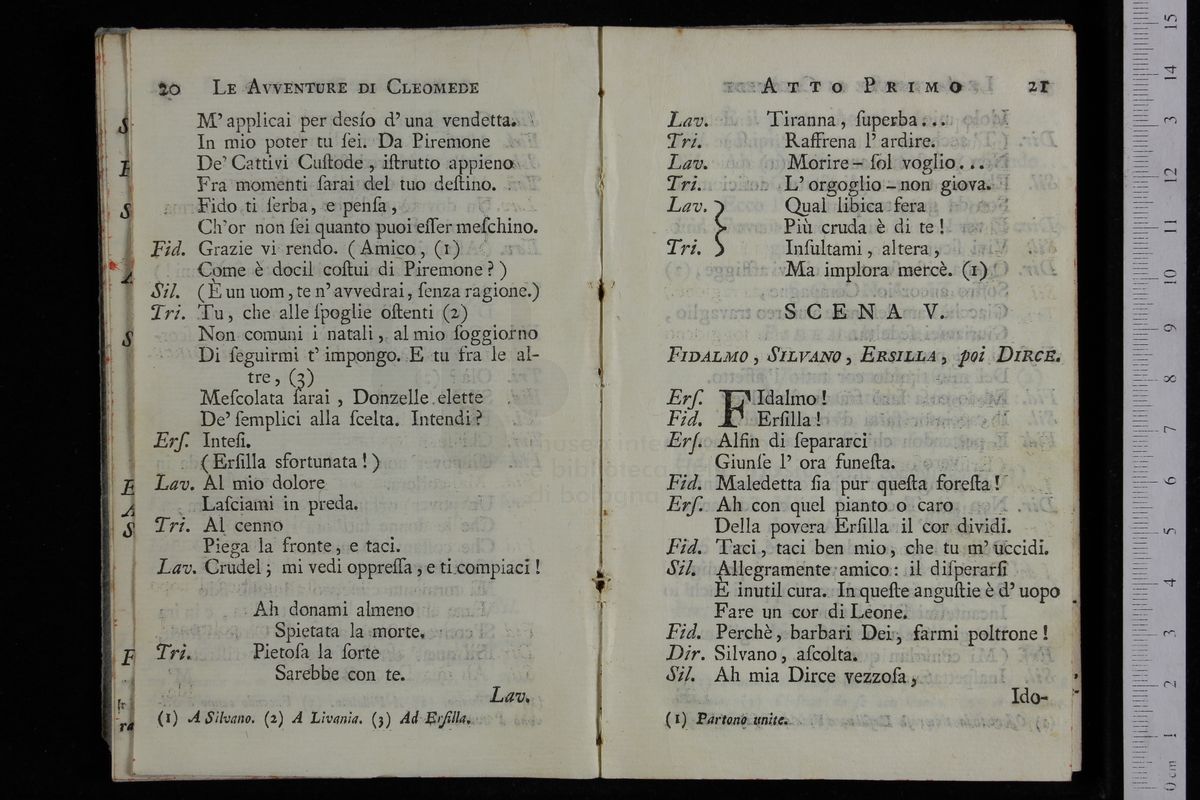 20 LE AVVENTURE DI CLEOMEDE
M' applicai per desío d' una vendetta.
In mio poter tu ſei. Da Piremone
De' Cattivi Cuſtode, iſtrutto appieno
Fra momenti ſarai del tuo deſtino.
Fido ti ſerba, e penſa,
Ch'or non ſei quanto puoi eſſer meſchino.
Fid. Grazie vi rendo. (Amico, (1)
Come è docil coſtui di Piremone?)
Sil. (È un uom, te n' avvedrai, ſenza ragione.)
Tri. Tu, che alle ſpoglie oſtenti (2)
Non comuni i natali, al mio ſoggiorno
Di ſeguirmi t' impongo. E tu fra le al-
tre, (3)
Meſcolata ſarai, Donzelle elette
De' ſemplici alla ſcelta. Intendi?
Erſ. Inteſi.
(Erſilla sfortunata!)
Lav. Al mio dolore
Laſciami in preda.
Tri. Al cenno
Piega la fronte, e taci.
Lav. Crudel; mi vedi oppreſſa, e ti compiaci!
Ah donami almeno
Spietata la morte.
Tri. Pietoſa la ſorte
Sarebbe con te.
Lav.
(1) A Silvano. (2) A Livania. (3) Ad Erſilla.
ATTO PRIMO 21
Lav. Tiranna, ſuperba...
Tri. Raffrena l' ardire.
Lav. Morire – ſol voglio...
Tri. L' orgoglio – non giova.
Lav. Qual libica fera
Più cruda è di te!
Tri. Inſultami, altera,
Ma implora mercè. (1)
SCENA V.
FIDALMO, SILVANO, ERSILLA, poi DIRCE.
Erſ. FIdalmo!
Fid. Erſilla!
Erſ. Alfin di ſepararci
Giunſe l' ora funeſta.
Fid. Maledetta ſia pur queſta foreſta!
Erſ. Ah con quel pianto o caro
Della povera Erſilla il cor dividi.
Fid. Taci, taci ben mio, che tu m' uccidi.
Sil. Allegramente amico: il diſperarſi
È inutil cura. In queſte anguſtie è d' uopo
Fare un cor di Leone.
Fid. Perchè, barbari Dei, farmi poltrone!
Dir. Silvano, aſcolta.
Sil. Ah mia Dirce vezzoſa,
Ido-
(1) Partono unite.